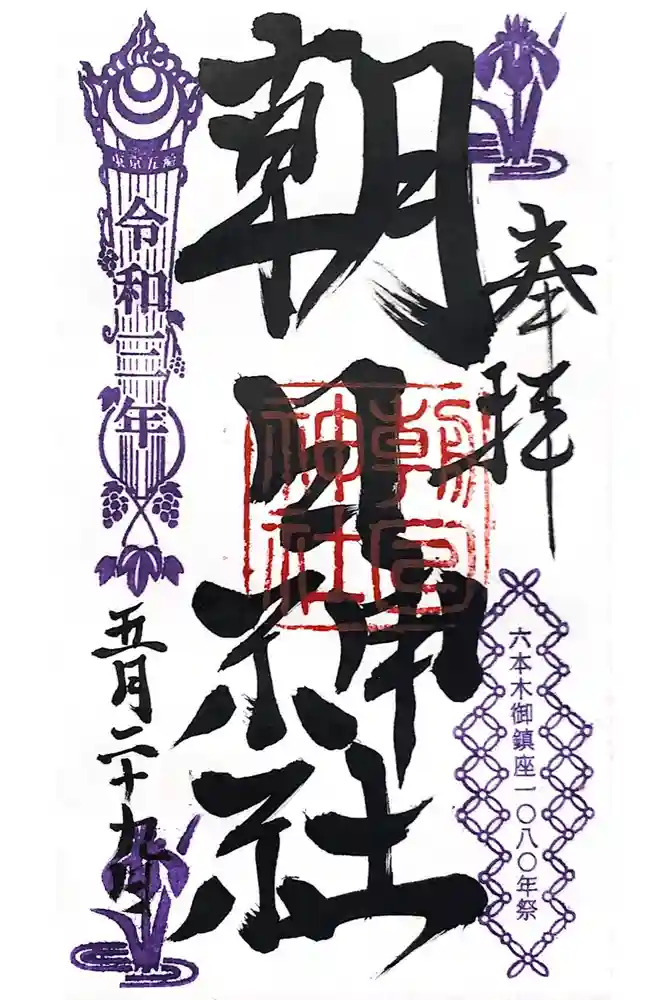 奉拝
六本木御鎮座一〇八〇年祭
朝日神社
朝日
神社
東京五輪
令和三年
五月二十九日